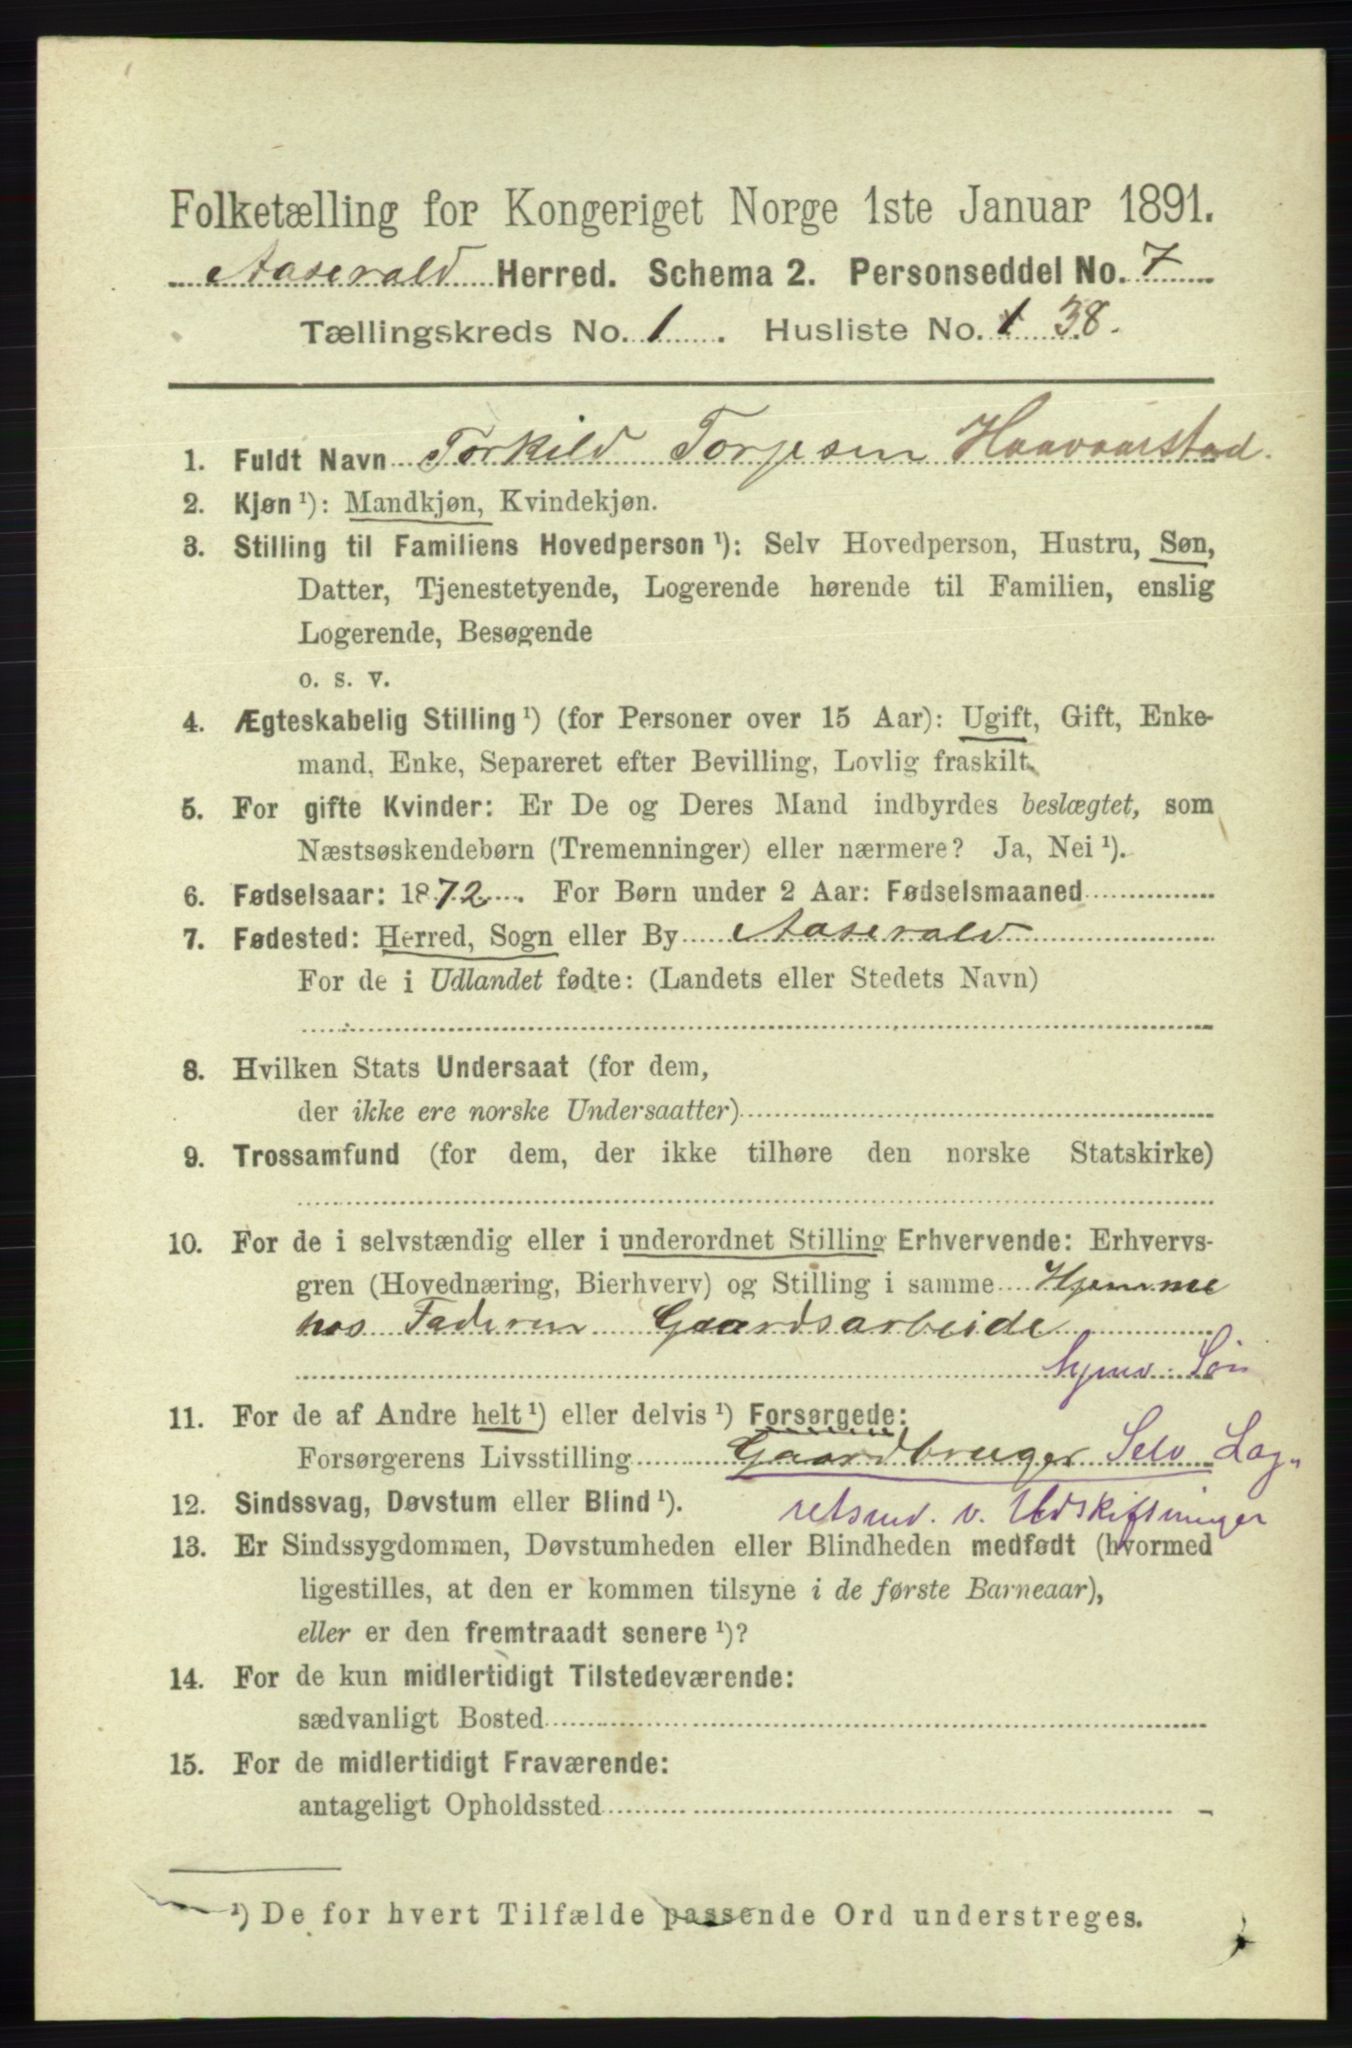 Folketælling for Kongeriget Norge 1ste Januar 1891.
Aaserald Herred. Schema 2. Personseddel No. 7
Tællingskreds No. 1. Husliste No. 1 38.
1. Fuldt Navn Torkild Torjesen Haavaarstad.
2. Kjøn ¹): Mandkjøn, Kvindekjøn.
3. Stilling til Familiens Hovedperson ¹): Selv Hovedperson, Hustru, Søn,
Datter, Tjenestetyende, Logerende hørende til Familien, enslig
Logerende, Besøgende
o. s. v.
4. Ægteskabelig Stilling ¹) (for Personer over 15 Aar): Ugift, Gift, Enke-
mand, Enke, Separeret efter Bevilling, Lovlig fraskilt.
5. For gifte Kvinder: Er De og Deres Mand indbyrdes beslægtet, som
Næstsøskendebørn (Tremenninger) eller nærmere? Ja, Nei ¹).
6. Fødselsaar: 1872. For Børn under 2 Aar: Fødselsmaaned
7. Fødested: Herred, Sogn eller By Aaserald
For de i Udlandet fødte: (Landets eller Stedets Navn)
8. Hvilken Stats Undersaat (for dem,
der ikke ere norske Undersaatter)
9. Trossamfund (for dem, der ikke tilhøre den norske Statskirke)
10. For de i selvstændig eller i underordnet Stilling Erhvervende: Erhvervs-
gren (Hovednæring, Bierhverv) og Stilling i samme Hjemme
hos Faderen Gaardsarbeide
Hjmv. Søn
11. For de af Andre helt ¹) eller delvis ¹) Forsørgede:
Forsørgerens Livsstilling Gaardbruger Selv Lag-
12. Sindssvag, Døvstum eller Blind ¹). retsmd. v. Udskiftninger
13. Er Sindssygdommen, Døvstumheden eller Blindheden medfødt (hvormed
ligestilles, at den er kommen tilsyne i de første Barneaar),
eller er den fremtraadt senere ¹)?
14. For de kun midlertidigt Tilstedeværende:
sædvanligt Bosted
15. For de midlertidigt Fraværende:
antageligt Opholdssted
¹) De for hvert Tilfælde passende Ord understreges.